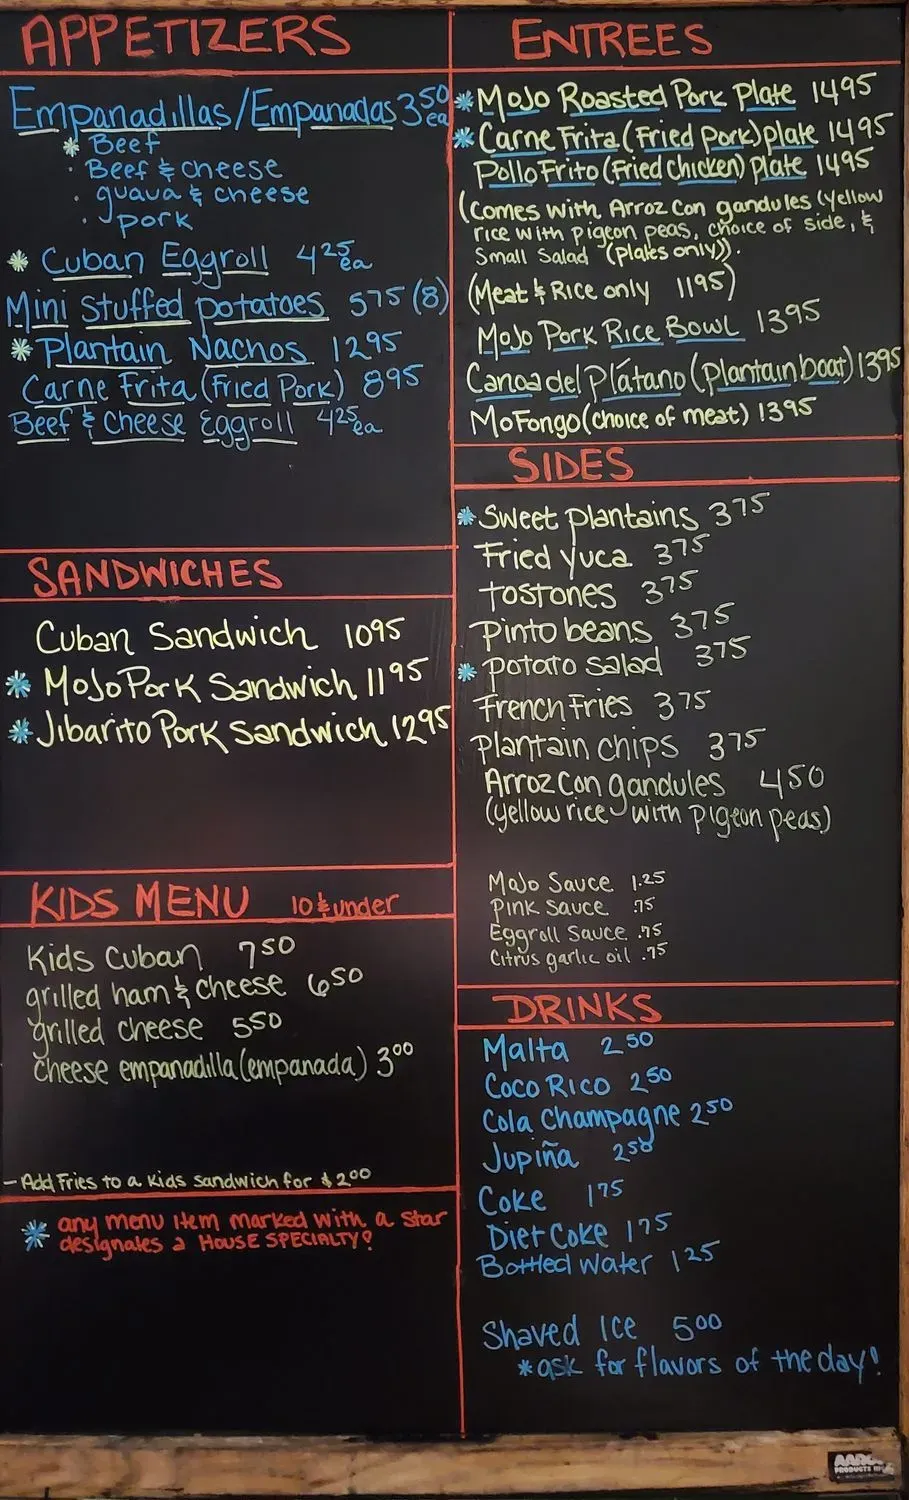 APPETIZERS
Empanadillas/Empanadas 3.50 ea
* Beef
· Beef & cheese
· guava & cheese
· pork
* Cuban Eggroll 4.25 ea
Mini Stuffed potatoes 575 (8)
* Plantain Nachos 1295
Carne Frita (Fried Pork) 895
Beef & Cheese Eggroll 4.25 ea
SANDWICHES
Cuban Sandwich 1095
* MoJo Pork Sandwich 1195
* Jibarito Pork Sandwich 1295
KIDS MENU 10 & under
Kids Cuban 750
grilled ham & cheese 650
grilled cheese 550
cheese empanadilla (empanada) 300
- Add Fries to a Kids sandwich for $200
* any menu item marked with a star
designates a HOUSE SPECIALTY!
ENTREES
* MoJo Roasted Pork Plate 1495
* Carne Frita (Fried Pork) plate 1495
Pollo Frito (Fried Chicken) Plate 1495
(Comes with Arroz Con gandules (yellow
rice with pigeon peas, choice of side, &
Small Salad (plates only)).
(Meat & Rice only 1195)
MoJo Pork Rice Bowl 1395
Canoa del Plátano (plantain boat) 1395
MoFongo (choice of meat) 1395
SIDES
* Sweet plantains 375
Fried Yuca 375
tostones 375
pinto beans 375
* potato salad 375
French Fries 375
Plantain chips 375
Arroz Con gandules 450
(yellow rice with pigeon peas)
MoJo Sauce 1.25
Pink Sauce .75
Eggroll Sauce .75
Citrus garlic oil .75
DRINKS
Malta 250
Coco Rico 250
Cola Champagne 250
Jupiña 250
Coke 175
Diet Coke 175
Bottled Water 125
Shaved Ice 500
* ask for flavors of the day!